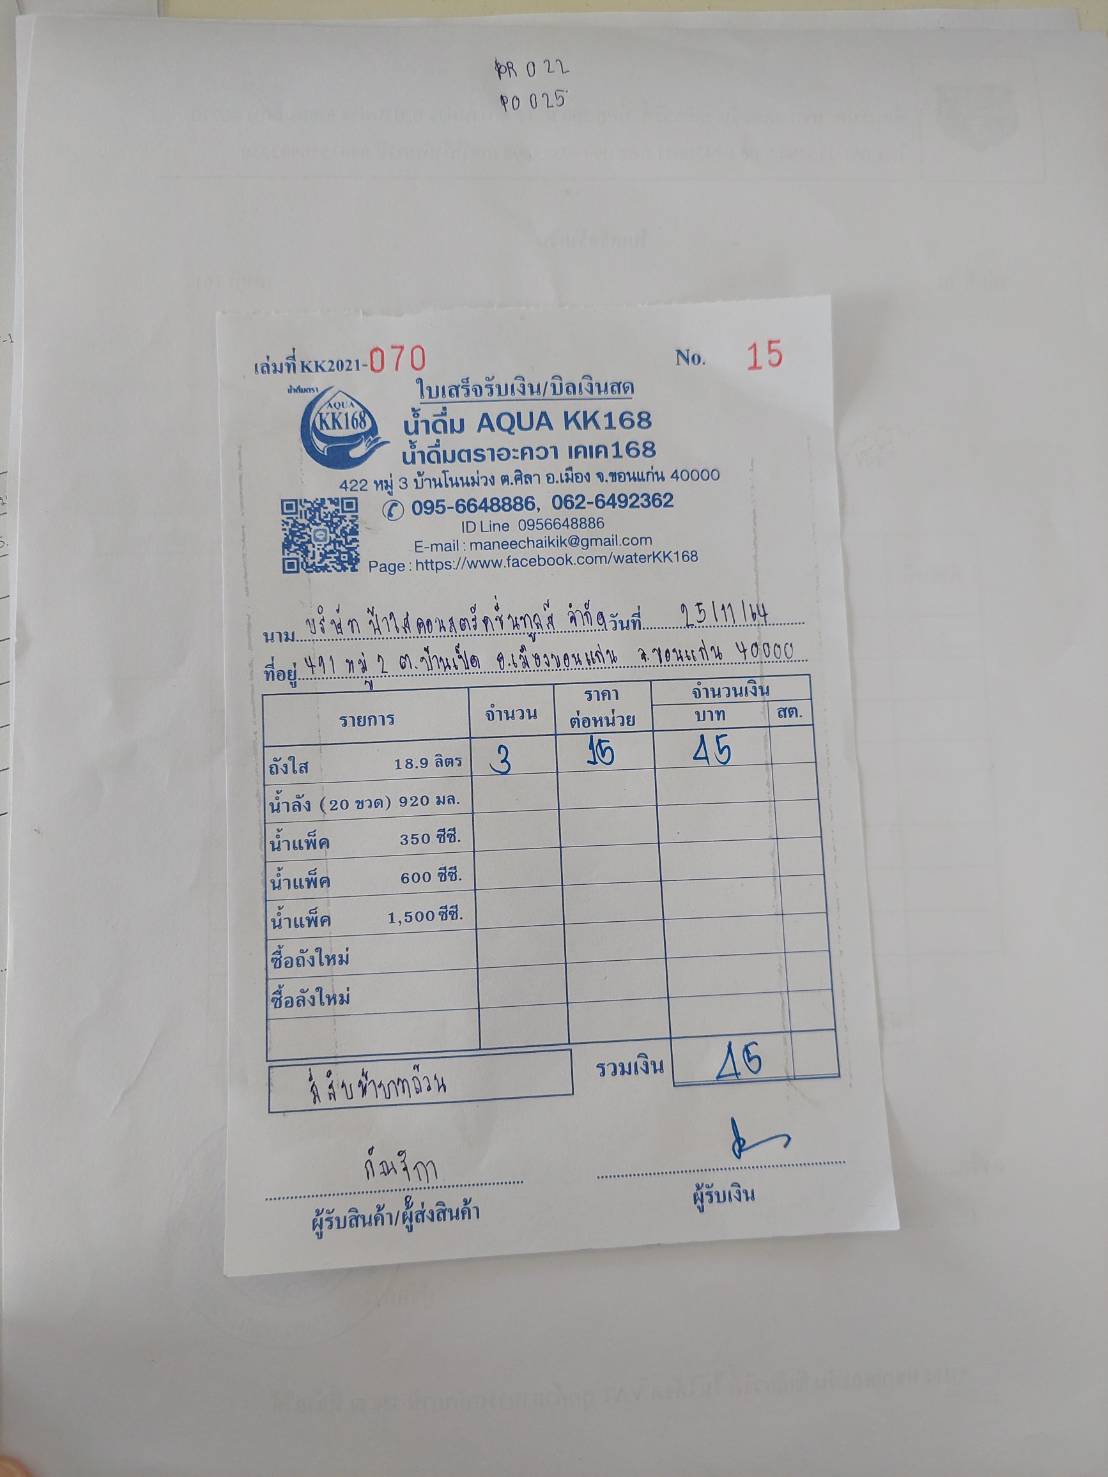 PR 022
PO 025
เล่มที่ KK2021-070 No. 15
ใบเสร็จรับเงิน/บิลเงินสด
น้ำดื่มตรา
AQUA
KK168
น้ำดื่ม AQUA KK168
น้ำดื่มตราอะควา เคเค168
422 หมู่ 3 บ้านโนนม่วง ต.ศิลา อ.เมือง จ.ขอนแก่น 40000
095-6648886, 062-6492362
ID Line 0956648886
E-mail : maneechaikik@gmail.com
Page : https://www.facebook.com/waterKK168
นาม บริษัท ฟ้าใสคอนสตรัคชั่นทูลส์ จำกัด วันที่ 25/11/64
ที่อยู่ 491 หมู่ 2 ต.บ้านเป็ด อ.เมืองขอนแก่น จ.ขอนแก่น 40000
รายการ จำนวน ราคาต่อหน่วย จำนวนเงิน
บาท สต.
ถังใส 18.9 ลิตร 3 15 45
น้ำลัง (20 ขวด) 920 มล.
น้ำแพ็ค 350 ซีซี.
น้ำแพ็ค 600 ซีซี.
น้ำแพ็ค 1,500 ซีซี.
ซื้อถังใหม่
ซื้อลังใหม่
สี่สิบห้าบาทถ้วน รวมเงิน 45
ผู้รับสินค้า/ผู้ส่งสินค้า ผู้รับเงิน